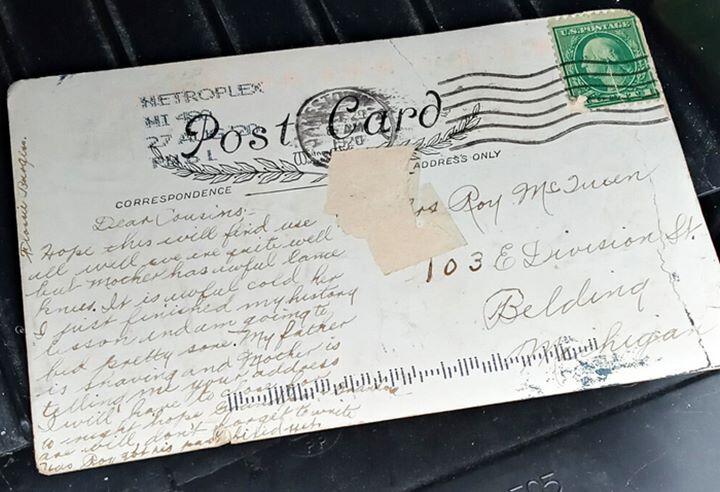 U.S. POSTAGE
METROPLEX
MI 48
Post Card
1920
CORRESPONDENCE
ADDRESS ONLY
Dear Cousins,-
Hope this will find use
all well we are quite well
but Mother has awful lame
knees. It is awful cold here
I just finished my history
lesson and am going to
bed pretty soon. My father
is shaving and Mother is
telling me your address
I will have to close
to night hope
are well don't forget to write
has Roy got his
Mrs Roy McQueen
103 E Division St.
Belding
Michigan